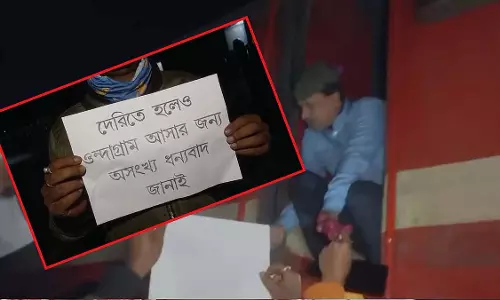 দেরিতে হলেও
ওন্দাগ্রাম আসার জন্য
অসংখ্য ধন্যবাদ
জানাই